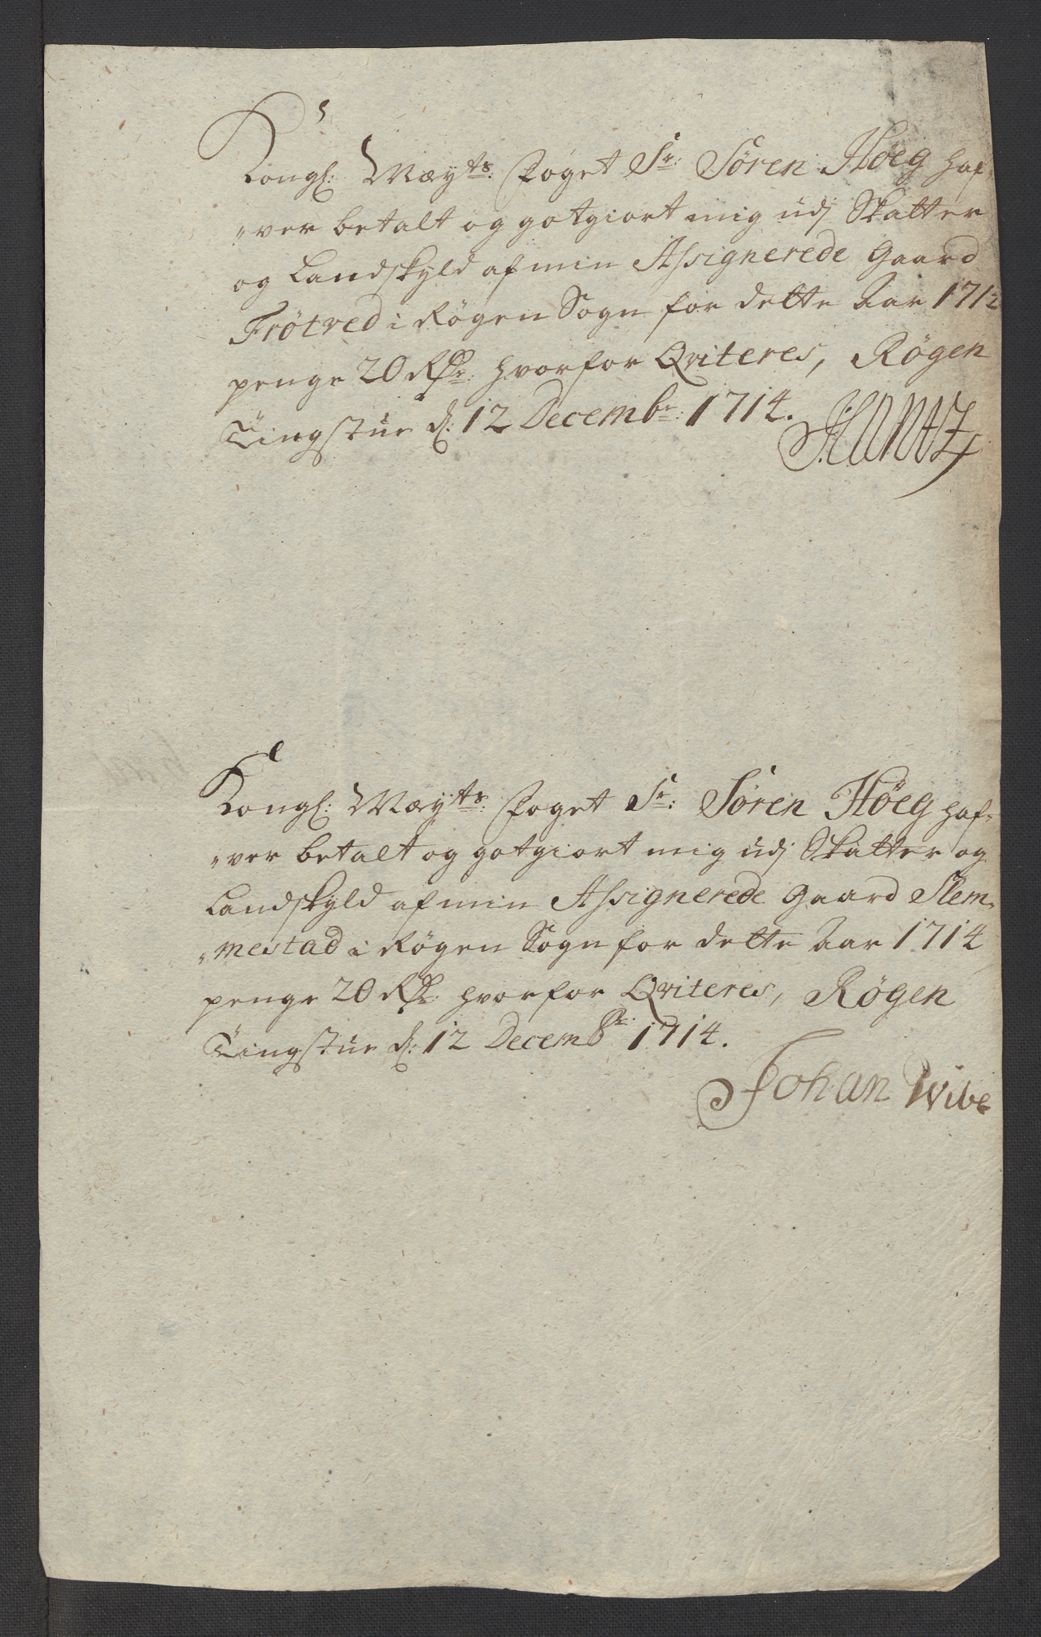 Kongl: Mayts: foget Sr: Søren Høeg haf-
„ver betalt og gotgiort mig udj Skatter
og Landskyld af min Assignerede gaard
Frøtved i Røgen Sogn for dette Aar 171
penge 20 Rdr: hvorfor Qviteres, Røgen
Tingstue d: 12 Decembr: 1714.
Kongl: Mayts: foget Sr: Søren Høeg haf-
„ver betalt og gotgiort mig udj Skatter og
Landskyld af min Assignerede gaard Slem-
„mestad i Røgen Sogn for dette Aar 1714
penge 20 Rdr: hvorfor Qviteres, Røgen
Tingstue d: 12 Decembr: 1714.
Johan Wibe